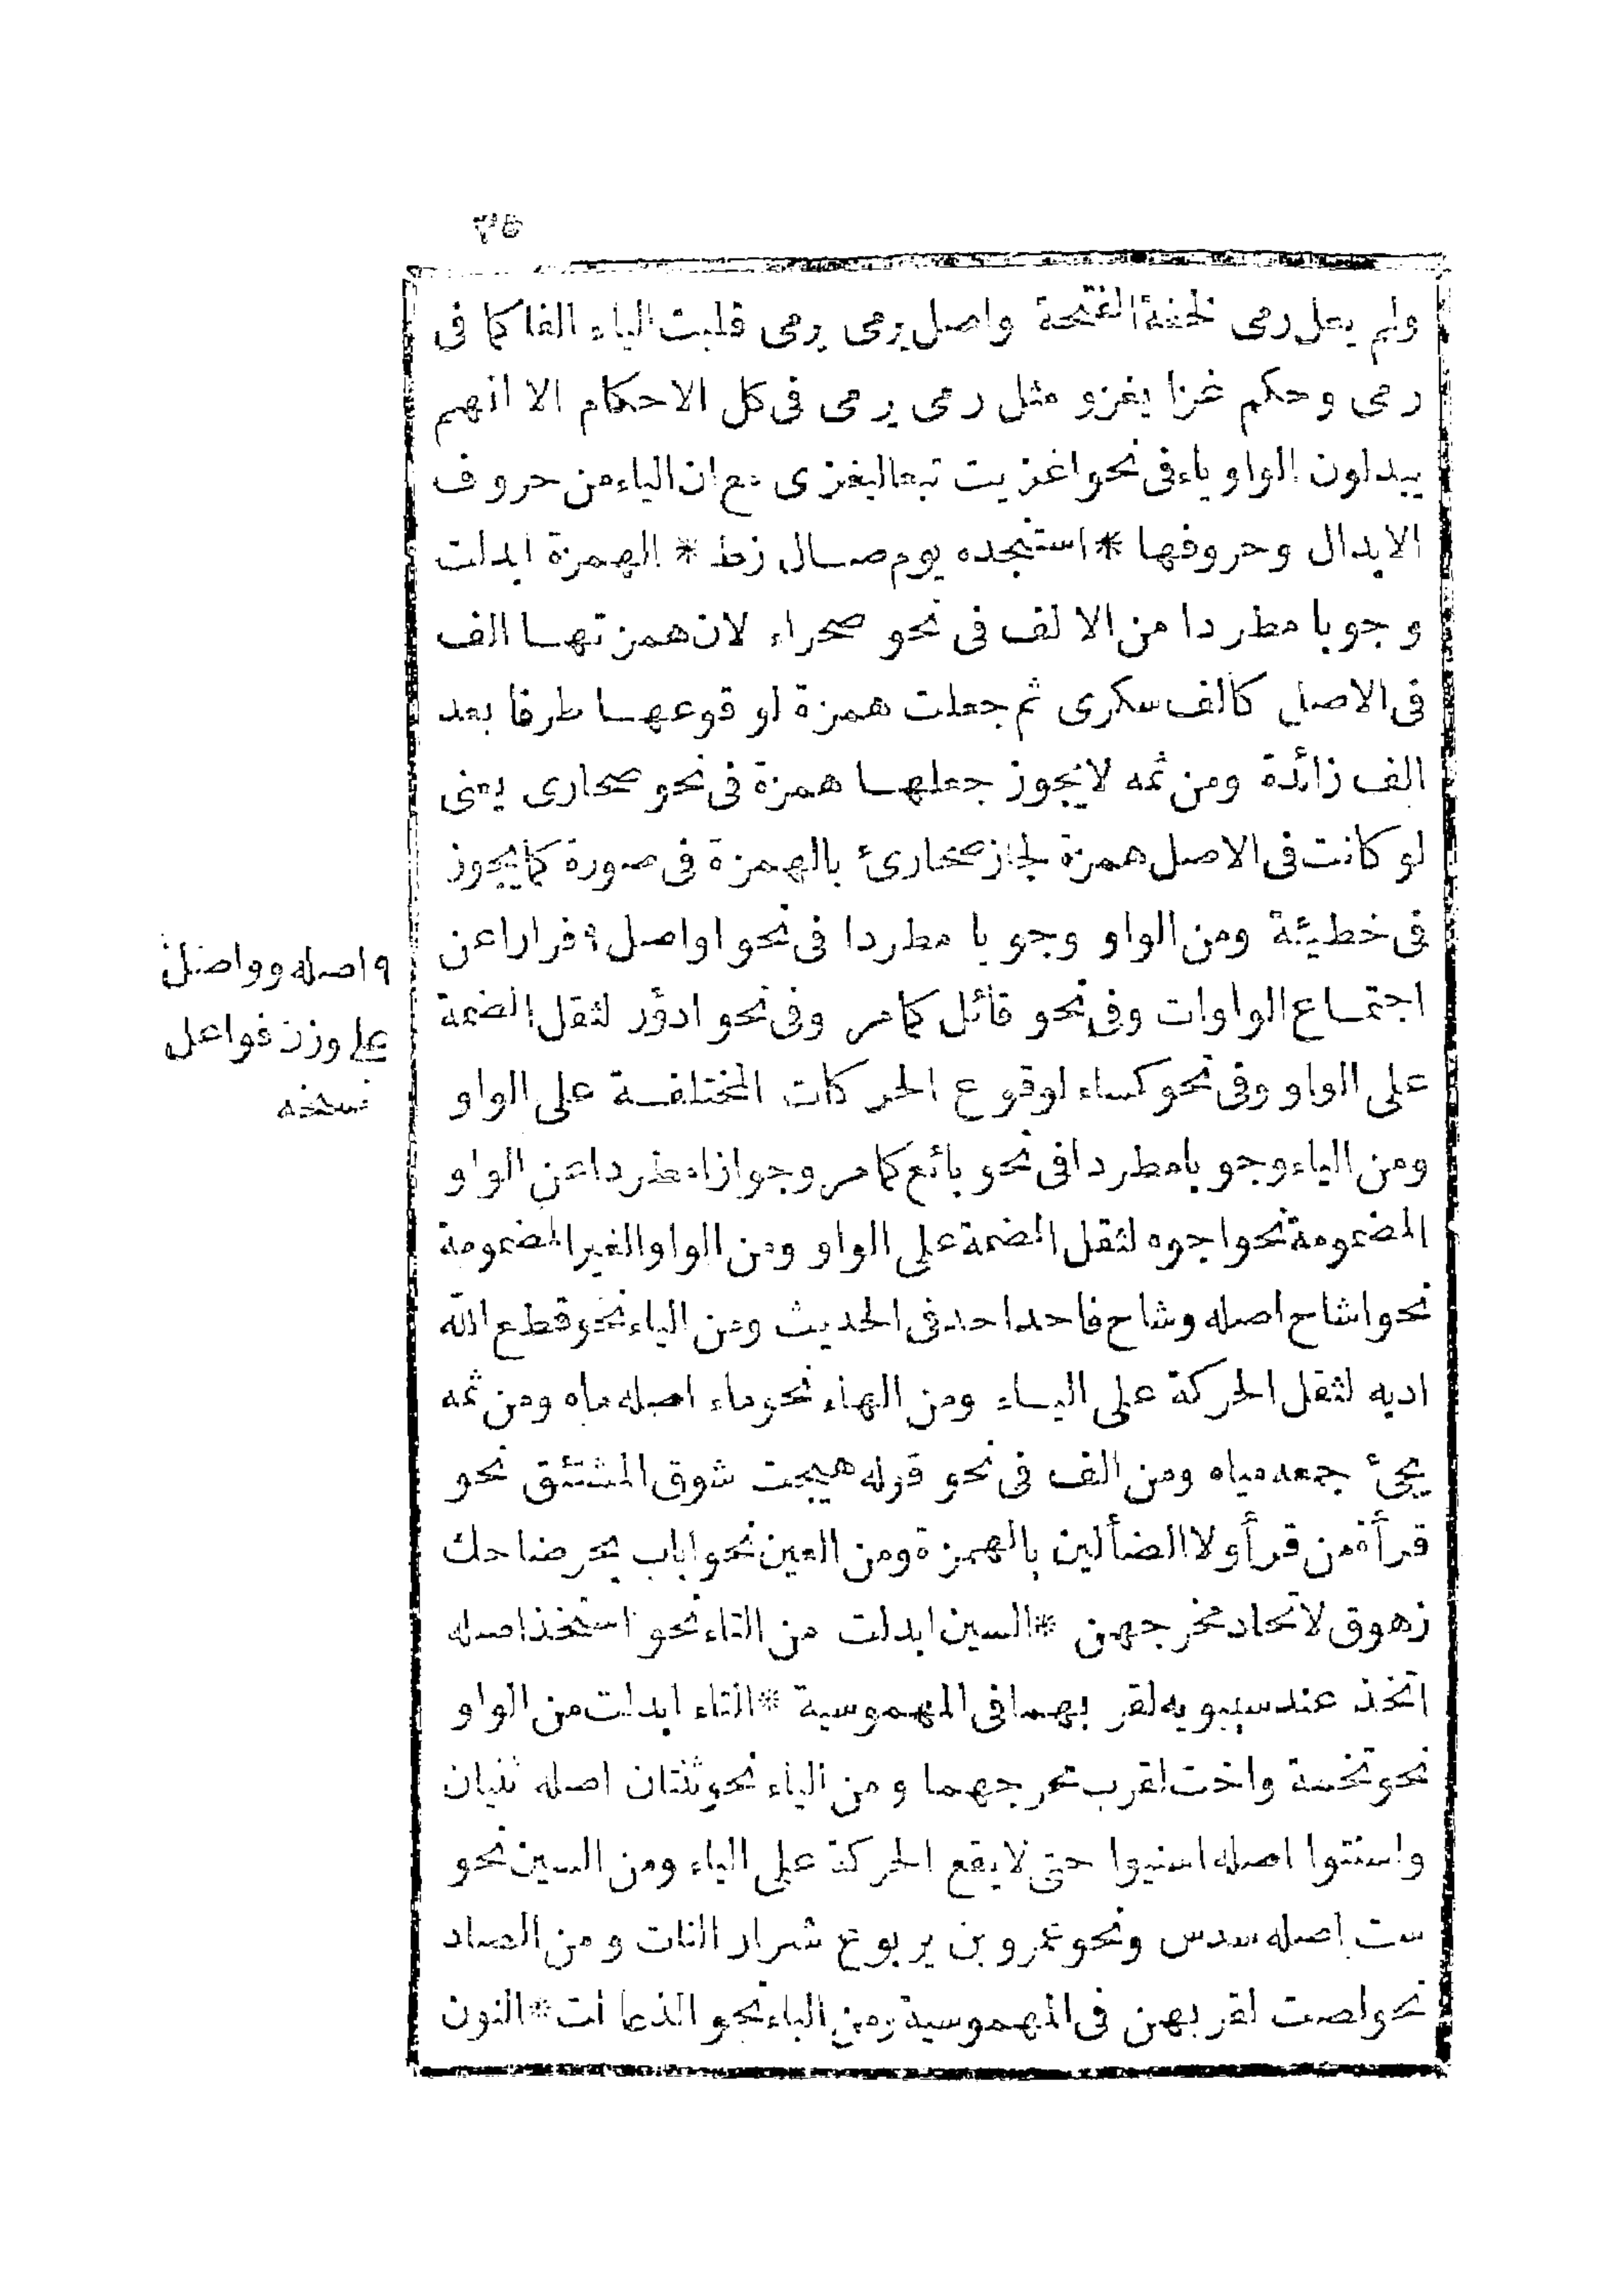 ٣٥
ولم يعل رمى لخفة الفتحة واصل يرمى يرمى قلبت الياء الفا كما فى
رمى وحكم غزا يغزو مثل رمى يرمى فى كل الاحكام الا انهم
يبدلون الواو ياء فى نحو اغزيت تبعا ليغزى مع ان الياء من حروف
الابدال وحروفها * استنجده يوم صال زط * الهمزة ابدلت
وجوبا مطردا من الالف فى نحو صحراء لان همزتها الف
فى الاصل كالف سكرى ثم جعلت همزة لوقوعها طرفا بعد
الف زائدة ومن ثمه لايجوز جعلها همزة فى نحو صحارى يعنى
لو كانت فى الاصل همزة لجاز صحارئ بالهمزة فى صورة كما يجوز
فى خطيئة ومن الواو وجوبا مطردا فى نحو اواصل ٩ فرارا عن
اجتماع الواوات وفى نحو قائل كما مر وفى نحو ادؤر لثقل الضمة
على الواو وفى نحو كساء لوقوع الحركات المختلفة على الواو
ومن الياء وجوبا مطردا فى نحو بائع كما مر وجوازا مطردا عن الواو
المضمومة نحو اجوه لثقل الضمة على الواو ومن الواو الغير المضمومة
نحو اشاح اصله وشاح فاحد احد فى الحديث ومن الياء نحو قطع الله
اديه لثقل الحركة على الياء ومن الهاء نحو ماء اصله ماه ومن ثمه
يجئ جمعه مياه ومن الف فى نحو قوله هيجت شوق المشتئق نحو
قرأة من قرأ ولا الضألين بالهمزة ومن العين نحو اباب بحر ضاحك
زهوق لاتحاد مخرجهن * السين ابدلت من التاء نحو استخذ اصله
اتخذ عند سيبويه لقربهما فى المهموسية * التاء ابدلت من الواو
نحو تخمة واخت لقرب مخرجهما ومن الياء نحو ثنتان اصله ثنيان
واسنتوا اصله اسنيوا حتى لايقع الحركة على الياء ومن السين نحو
ست اصله سدس ونحو عمرو بن يربوع شرار النات ومن الصاد
نحو لصت لقربهن فى المهموسية ومن الباء نحو الذعالت * النون
٩ اصله وواصل
على وزن فواعل
نسخه